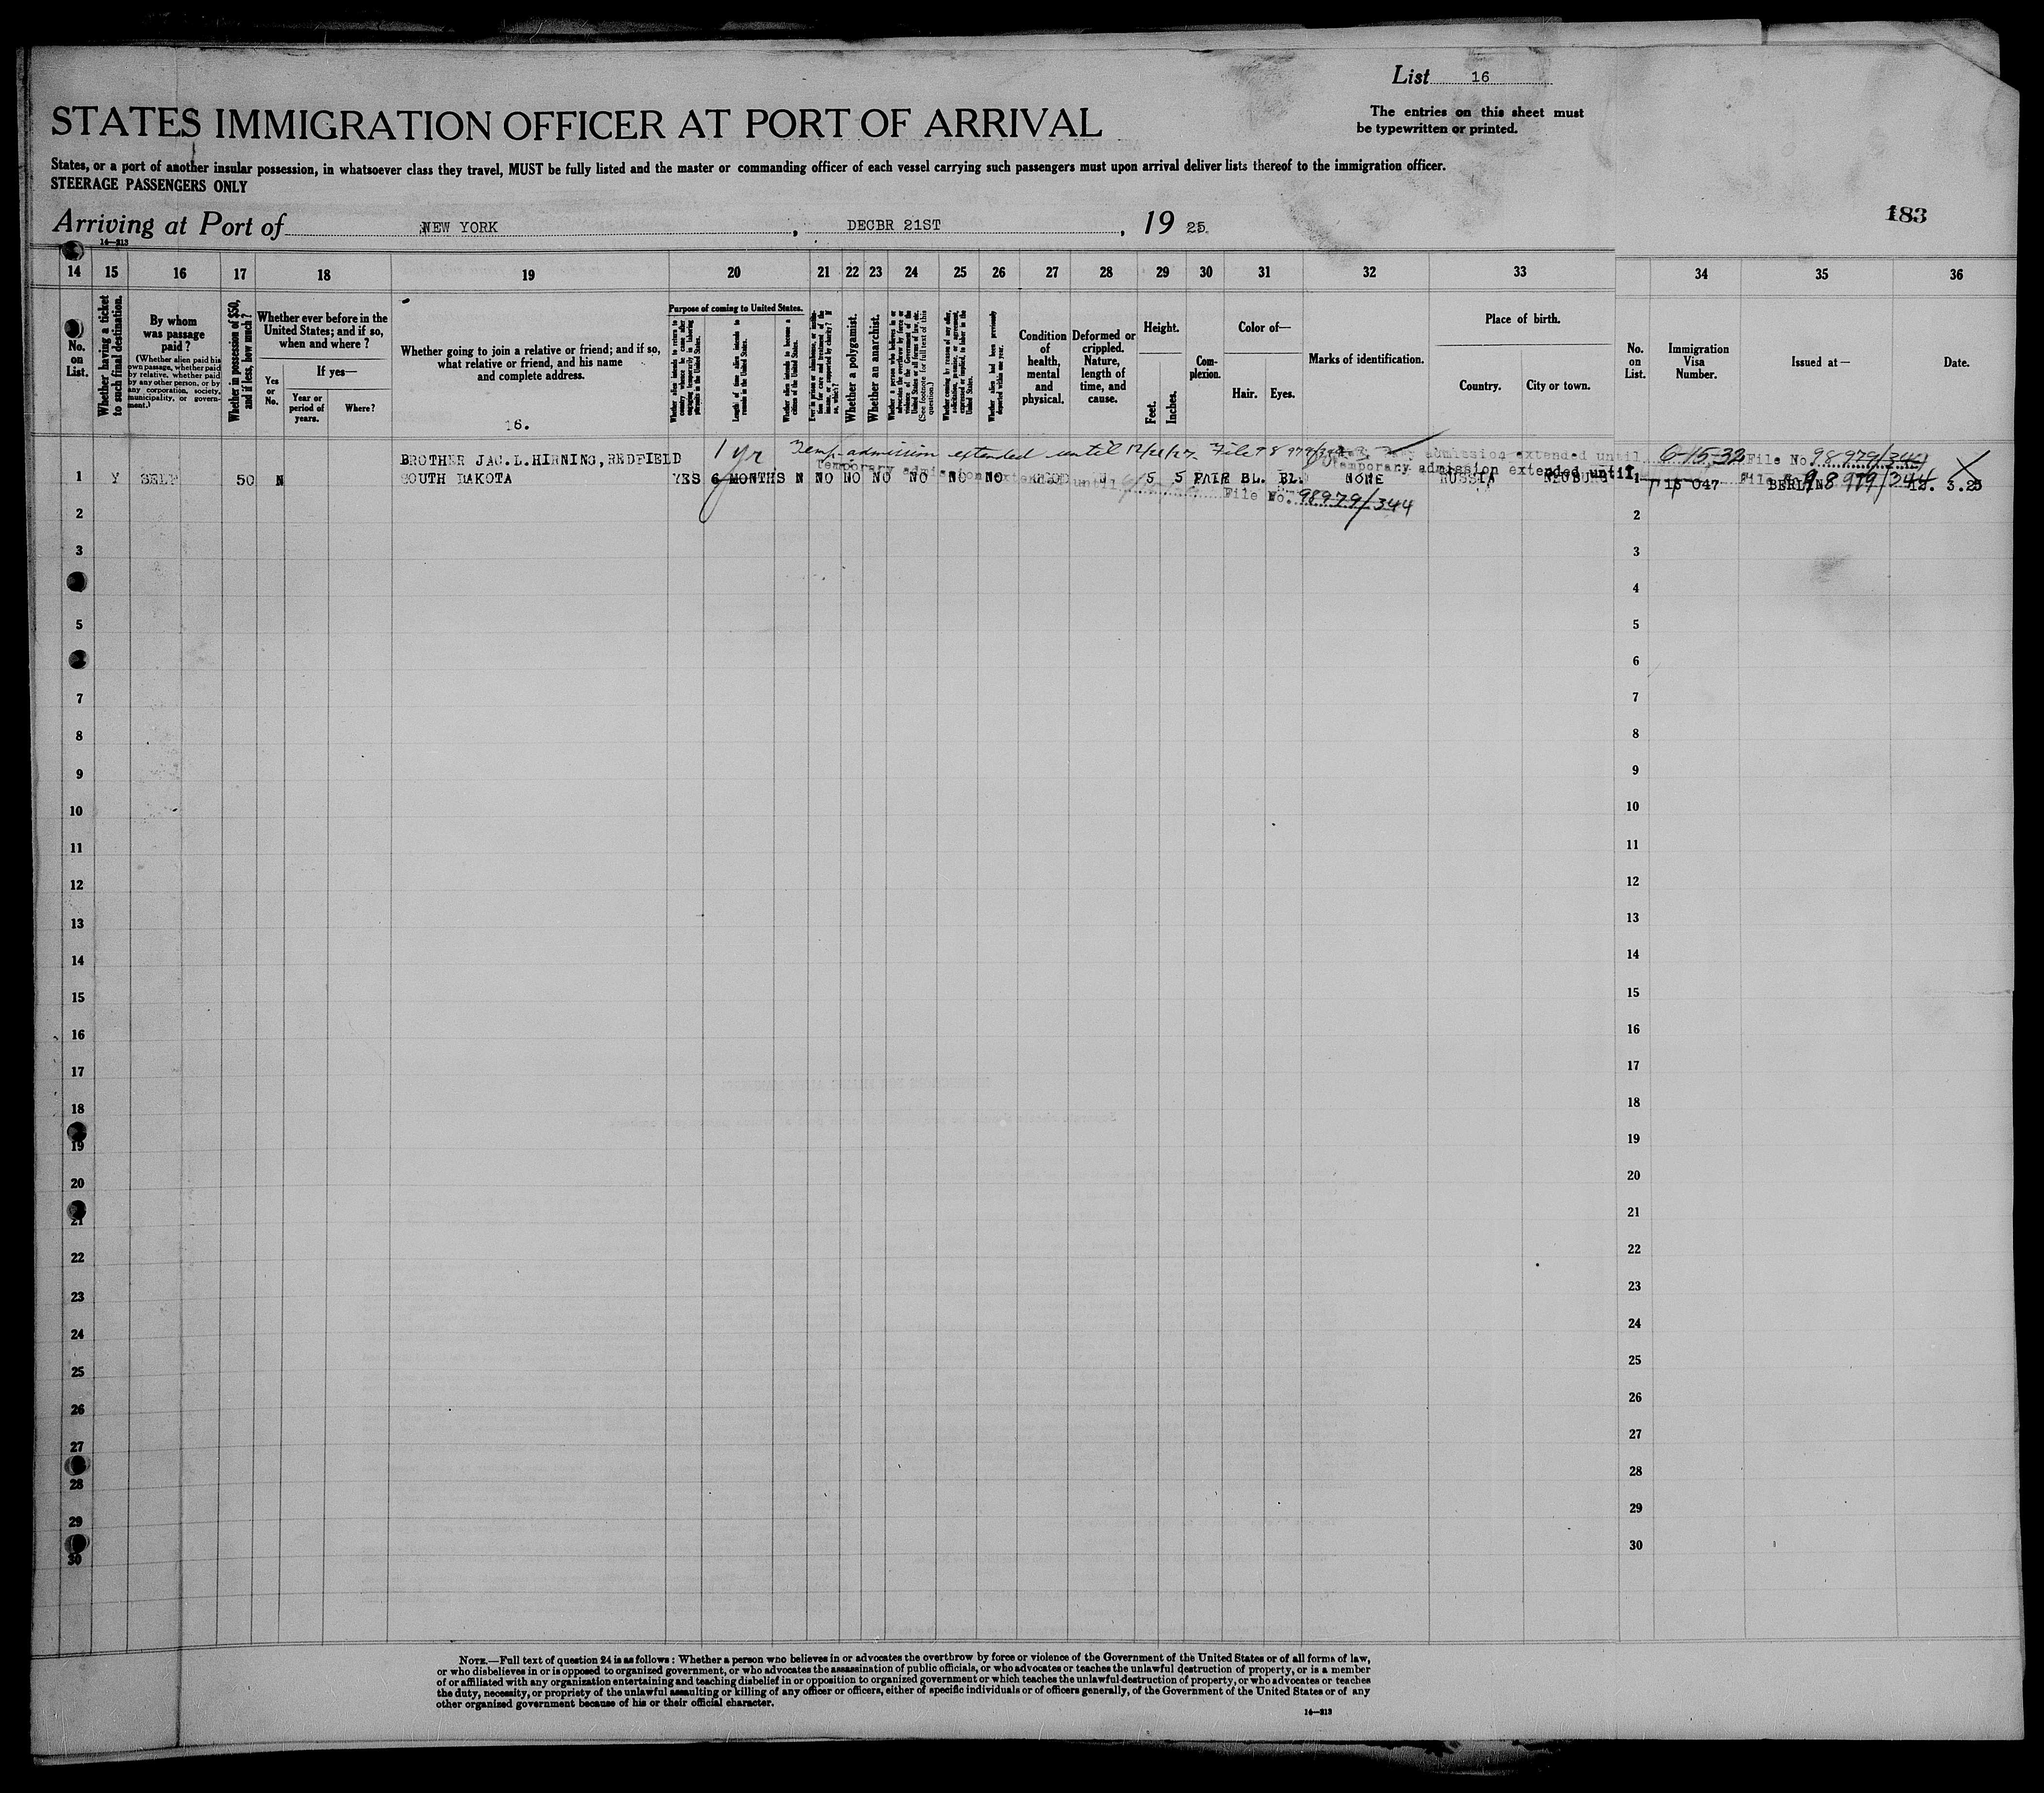 List 16
The entries on this sheet must
be typewritten or printed.
STATES IMMIGRATION OFFICER AT PORT OF ARRIVAL
States, or a port of another insular possession, in whatsoever class they travel, MUST be fully listed and the master or commanding officer of each vessel carrying such passengers must upon arrival deliver lists thereof to the immigration officer.
STEERAGE PASSENGERS ONLY
183
Arriving at Port of NEW YORK, DECBR 21ST, 19 25.
14—213
14 15 16 17 18 19 20 21 22 23 24 25 26 27 28 29 30 31 32 33 34 35 36
No. on List.
Whether having a ticket to such final destination.
By whom was passage paid?
(Whether alien paid his own passage, whether paid by relative, whether paid by any other person, or by any corporation, society, municipality, or government.)
Whether in possession of $50, and if less, how much?
Whether ever before in the United States; and if so, when and where?
Yes or No.
If yes—
Year or period of years.
Where?
Whether going to join a relative or friend; and if so, what relative or friend, and his name and complete address.
16.
Purpose of coming to United States.
Whether alien intends to return to country whence he came after engaging temporarily in laboring pursuits in the United States.
Length of time alien intends to remain in the United States.
Whether alien intends to become a citizen of the United States.
Ever in prison or almshouse, or institution for care and treatment of the insane, or supported by charity? If so, which?
Whether a polygamist.
Whether an anarchist.
Whether a person who believes in or advocates the overthrow by force or violence of the Government of the United States or all forms of law, etc. (See footnote for full text of this question.)
Whether coming by reason of any offer, solicitation, promise, or agreement, expressed or implied, to labor in the United States.
Whether alien had been previously deported within one year.
Condition of health, mental and physical.
Deformed or crippled. Nature, length of time, and cause.
Height.
Feet.
Inches.
Complexion.
Color of—
Hair.
Eyes.
Marks of identification.
Place of birth.
Country.
City or town.
No. on List.
Immigration Visa Number.
Issued at—
Date.
BROTHER JAC.L.HIRNING, REDFIELD 1 yr Temp. admission extended until 12/21/27 File 98979/344 admission extended until 6-15-32 File No. 98979/344
1 Y SELF 50 N SOUTH DAKOTA YES 6 MONTHS N NO NO NO NO NO NO GOOD N 5 5 FAIR BL. BL. NONE RUSSIA 1 15 047 BERLIN 12. 3.25
Temporary admission extended until
Temporary admission extended until File No. 98979/344
File No. 98979/344
2
3
4
5
6
7
8
9
10
11
12
13
14
15
16
17
18
19
20
21
22
23
24
25
26
27
28
29
30
NOTE.—Full text of question 24 is as follows: Whether a person who believes in or advocates the overthrow by force or violence of the Government of the United States or of all forms of law,
or who disbelieves in or is opposed to organized government, or who advocates the assassination of public officials, or who advocates or teaches the unlawful destruction of property, or is a member
of or affiliated with any organization entertaining and teaching disbelief in or opposition to organized government or which teaches the unlawful destruction of property, or who advocates or teaches
the duty, necessity, or propriety of the unlawful assaulting or killing of any officer or officers, either of specific individuals or of officers generally, of the Government of the United States or of any
other organized government because of his or their official character.
14—213